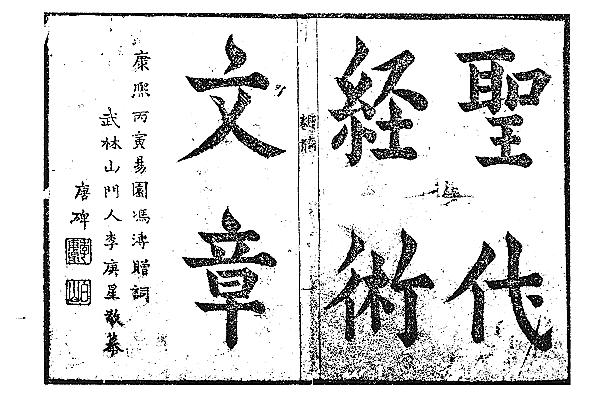 聖代
經術
文章
康熙丙寅易園馮溥贈詞
武林山門人李庚星敬摹
唐碑